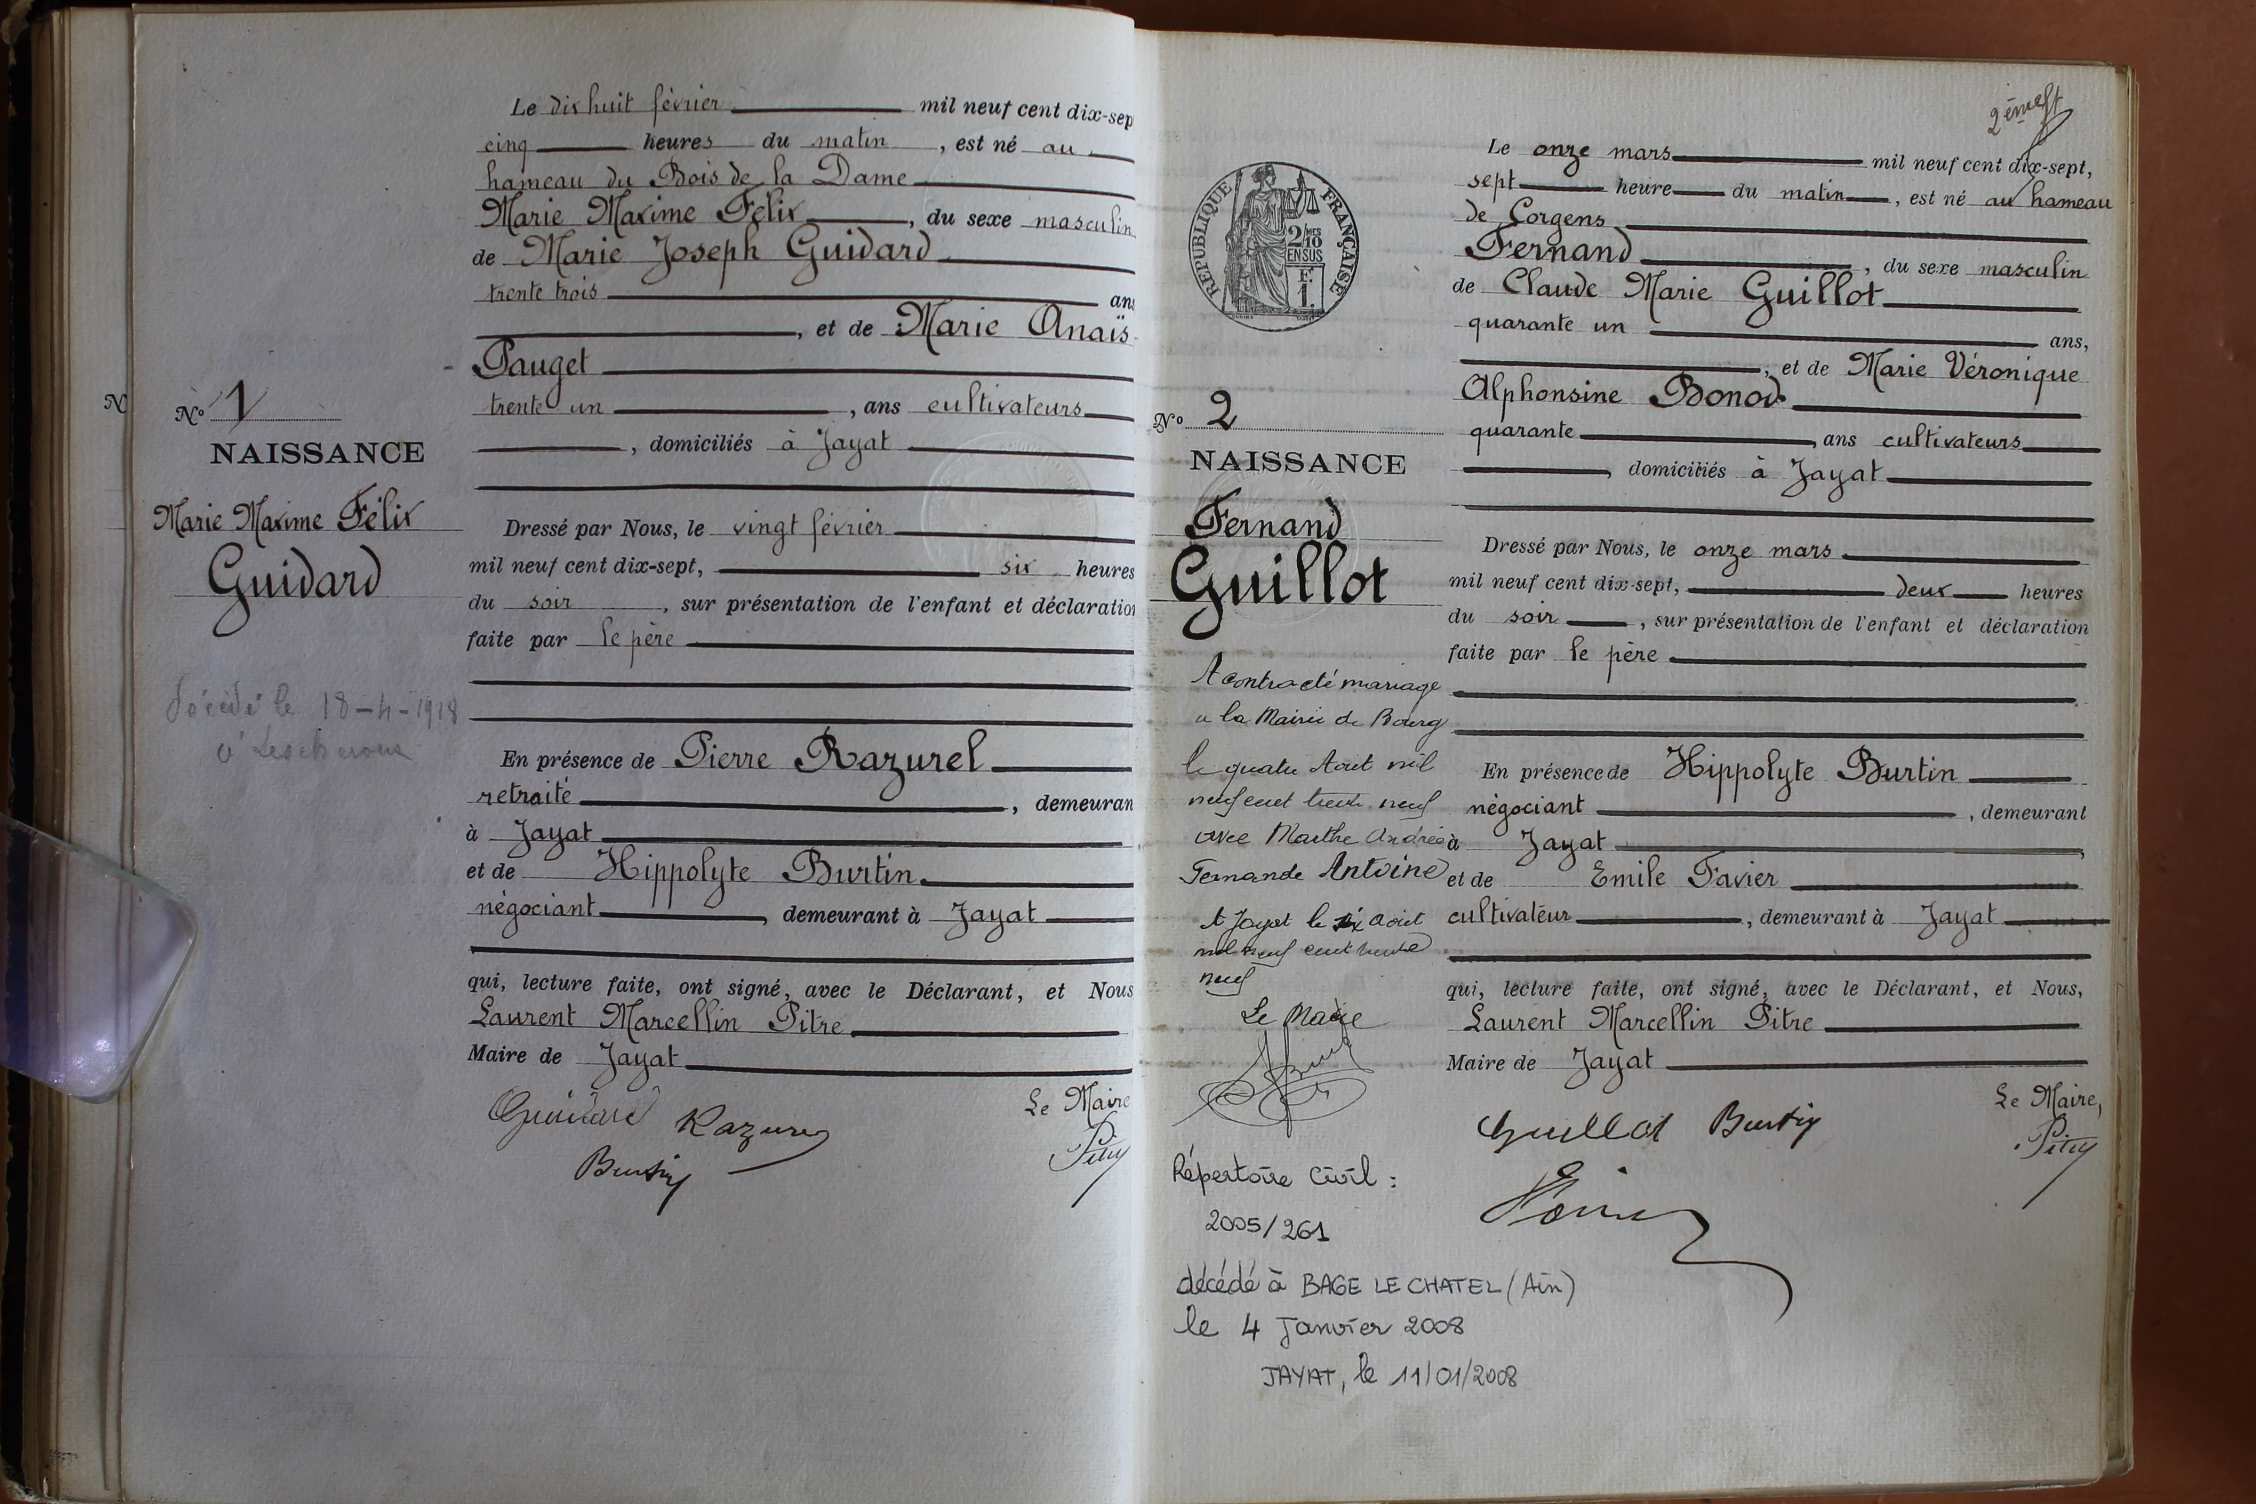 Le dix huit février mil neuf cent dix-sep
cinq heures du matin, est né au
hameau du Bois de la Dame
Marie Maxime Félix, du sexe masculin
de Marie Joseph Guidard
trente trois ans
, et de Marie Anaïs
Pauget
trente un, ans cultivateurs
, domiciliés à Jayat
N
No 1
NAISSANCE
Marie Maxime Félix
Guidard
Décédé le 18-4-1918
à Lescheroux
Dressé par Nous, le vingt février
mil neuf cent dix-sept, six heures
du soir, sur présentation de l'enfant et déclaration
faite par le père
En présence de Pierre Razurel
retraité, demeuran
à Jayat
et de Hippolyte Burtin
négociant, demeurant à Jayat
qui, lecture faite, ont signé, avec le Déclarant, et Nous
Laurent Marcellin Pitre
Maire de Jayat
Guidard Razurel
Burtin
Le Maire
Pitre
2ème ft
RÉPUBLIQUE FRANÇAISE
2/10 MES
EN SUS
F.
1.
Le onze mars mil neuf cent dix-sept,
sept heure du matin, est né au hameau
de Corgens
Fernand, du sexe masculin
de Claude Marie Guillot
quarante un ans,
, et de Marie Véronique
Alphonsine Bonod
quarante, ans cultivateurs
, domiciliés à Jayat
No 2
NAISSANCE
Fernand
Guillot
A contracté mariage
a la Mairie de Bourg
le quatre Aout mil
neuf cent trente neuf
avec Marthe Andrée
Fernande Antoine
A Jayat le six Août
mil neuf cent trente
neuf
Le Maire
Répertoire Civil :
2005/261
décédé à BAGE LE CHATEL (Ain)
le 4 Janvier 2008
JAYAT, le 11/01/2008
Dressé par Nous, le onze mars
mil neuf cent dix-sept, deux heures
du soir, sur présentation de l'enfant et déclaration
faite par le père
En présence de Hippolyte Burtin
négociant, demeurant
à Jayat
et de Emile Favier
cultivateur, demeurant à Jayat
qui, lecture faite, ont signé, avec le Déclarant, et Nous,
Laurent Marcellin Pitre
Maire de Jayat
Guillot Burtin
Le Maire,
Pitre